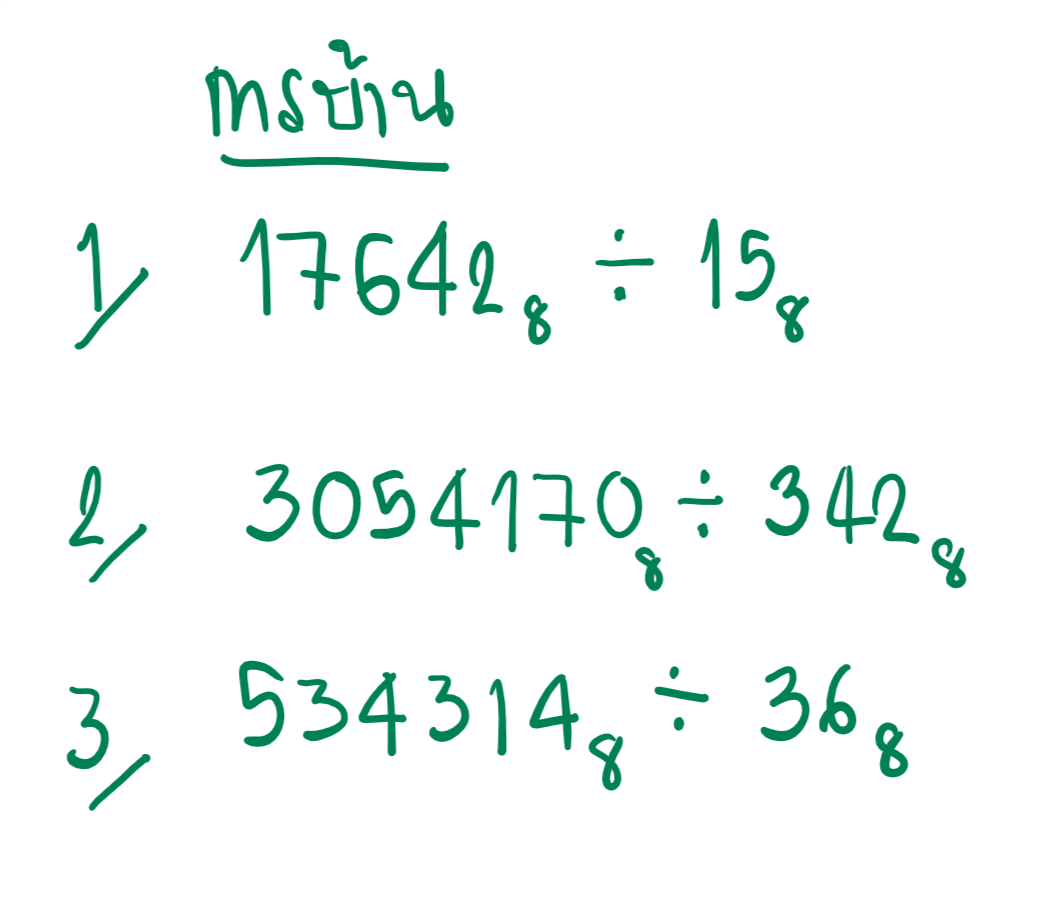 การบ้าน
1/ 17642₈ ÷ 15₈
2/ 3054170₈ ÷ 342₈
3/ 534314₈ ÷ 36₈